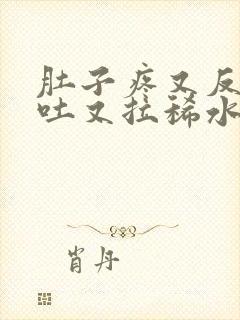 肚子疼又反
吐又拉稀水
肖丹